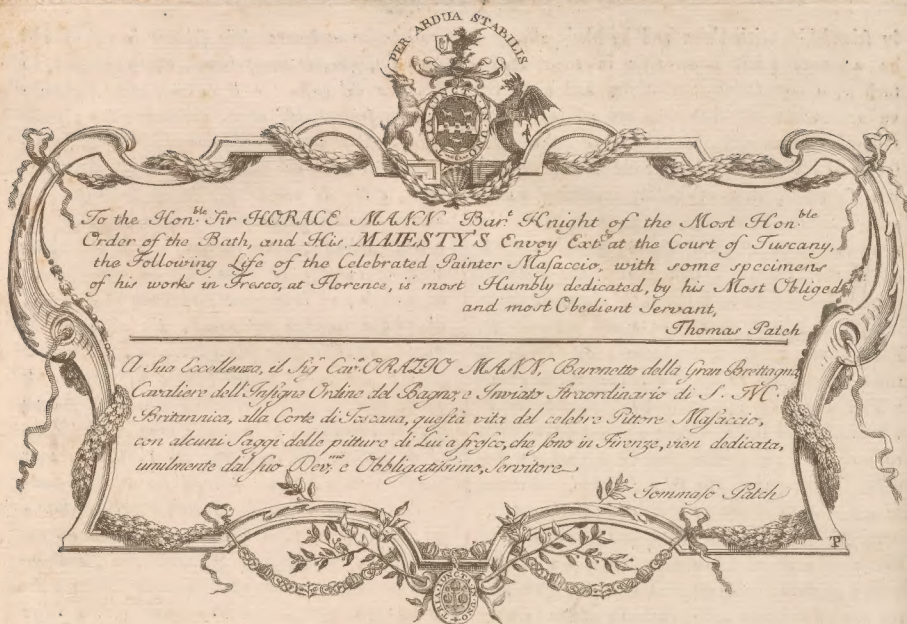 PER ARDUA STABILIS
TRIA JUNCTA IN UNO
To the Hon.ble Sir HORACE MANN Bar.t Knight of the Most Hon.ble
Order of the Bath, and His MAJESTY'S Envoy Ext.y at the Court of Tuscany,
the Following Life of the Celebrated Painter Maſaccio, with some specimens
of his works in Fresco, at Florence, is most Humbly dedicated, by his Most Obliged
and most Obedient Servant,
Thomas Patch
A Sua Eccellenza, il Sig.r Cav.r ORAZIO MANN, Baronetto della Gran Brettagna,
Cavaliere dell'Inſigne Ordine del Bagno, e Inviato Straordinario di S. M.
Britannica, alla Corte di Toscana, queſta vita del celebre Pittore Maſaccio,
con alcuni Saggi delle pitture di Lui a freſco, che ſono in Firenze, vien dedicata,
umilmente dal ſuo Dev.mo e Obbligatiſsimo, Servitore
Tommaſo Patch
TP
TRIA JUNCTA IN UNO